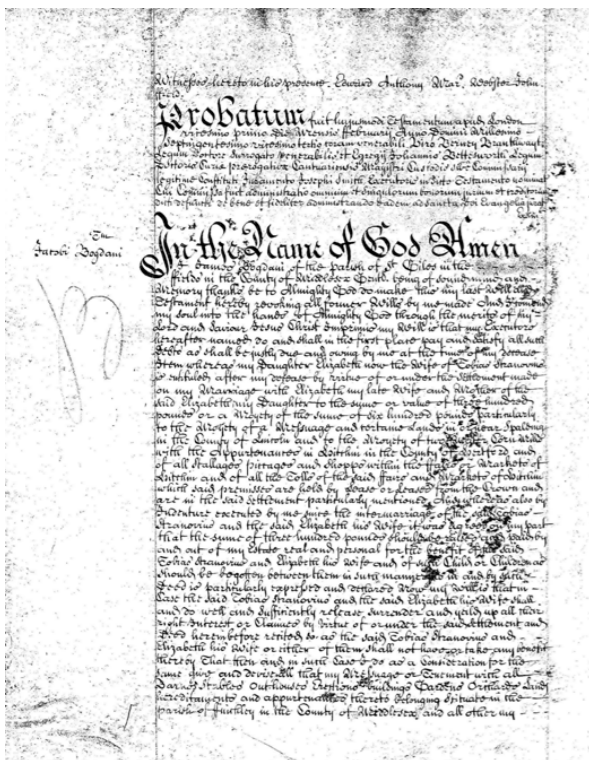 Witnesses hereto in his presence. Edward Anthony Mar. Webster John
ffield.
Probatum fuit hujusmodi Testamentum apud London
vicesimo primo die Mensis ffebruarij Anno Domini Millesimo
Septingentesimo vicesimo tertio coram venerabili Viro
Legum Doctore Surrogato venerabilis et Egregij Johannis Bettesworth Legum
Doctoris Curiae Praerogativae Cantuariensis Magistri Custodis sive Commissarij
legitime Constituti Juramento Josephi Smith Executoris in dicto Testamento nominat
Cui Commissa fuit administratio omnium et singulorum bonorum jurium et creditorum
dicti defuncti de bene et fideliter administrando eadem ad Sancta Dei Evangelia jurat
Tm
Jacobi Bogdani
In the Name of God Amen
I James Bogdani of the parish of St Giles in the
ffields in the County of Middlesex Gentl. being of sound mind and
Memory thanks be to Almighty God do make this my last Will and
Testament hereby revoking all former Wills by me made And I comend
my soul into the hands of Almighty God through the merits of my
Lord and Saviour Jesus Christ Imprimis my Will is that my Executors
hereafter named do and shall in the first place pay and satisfy all such
debts as shall be justly due and owing by me at the time of my decease
Item whereas my Daughter Elizabeth now the Wife of Tobias Stranovius
is intituled after my decease by virtue of or under the Settlement made
on my Marriage with Elizabeth my late Wife and Mother of the
said Elizabeth my Daughter to the sume or value of three hundred
pounds or a Moyety of the sume of six hundred pounds particularly
to the Moyety of a Messuage and certaine Lands in or near Spalding
in the County of Lincoln and to the Moyety of two Water Corn
with the Appurtenances in Hitchin in the County of Hertford and
of all Stallages piccages and Shopps within the ffaires or Markets of
Hitchin and of all the Tolls of the said ffairs and Markets of Hitchin
which said premises are held by Lease or Leases from the Crown and
are in the said Settlement particularly mentioned And whereas also by
Indenture executed by me since the intermarriage of the said Tobias
Stranovius and the said Elizabeth his Wife it was Agreed on my part
that the sume of three hundred pounds should be raised and paid by
and out of my Estate real and personal for the benefit of the said
Tobias Stranovius and Elizabeth his Wife and of such Child or Children as
should be begotten between them in such manner as in and by such
Deed is particularly expressed and declared Now my Will is that in
Case the said Tobias Stranovius and the said Elizabeth his Wife shall
and do well and sufficiently release surrender and yeild up all their
right Interest or Claimes by Virtue of or under the said Settlement and
Deed herein before recited so as the said Tobias Stranovius and
Elizabeth his Wife or either of them shall not have or take any benefit
thereby That then and in such Case I do as a Consideration for the
same give and devise all that my Messuage or Tenement with all
Barnes Stables Outhouses Buildings Gardens Orchards Lands
hereditaments and appurtenances thereto belonging Situate in the
parish of ffinchley in the County of Middlesex and all other my